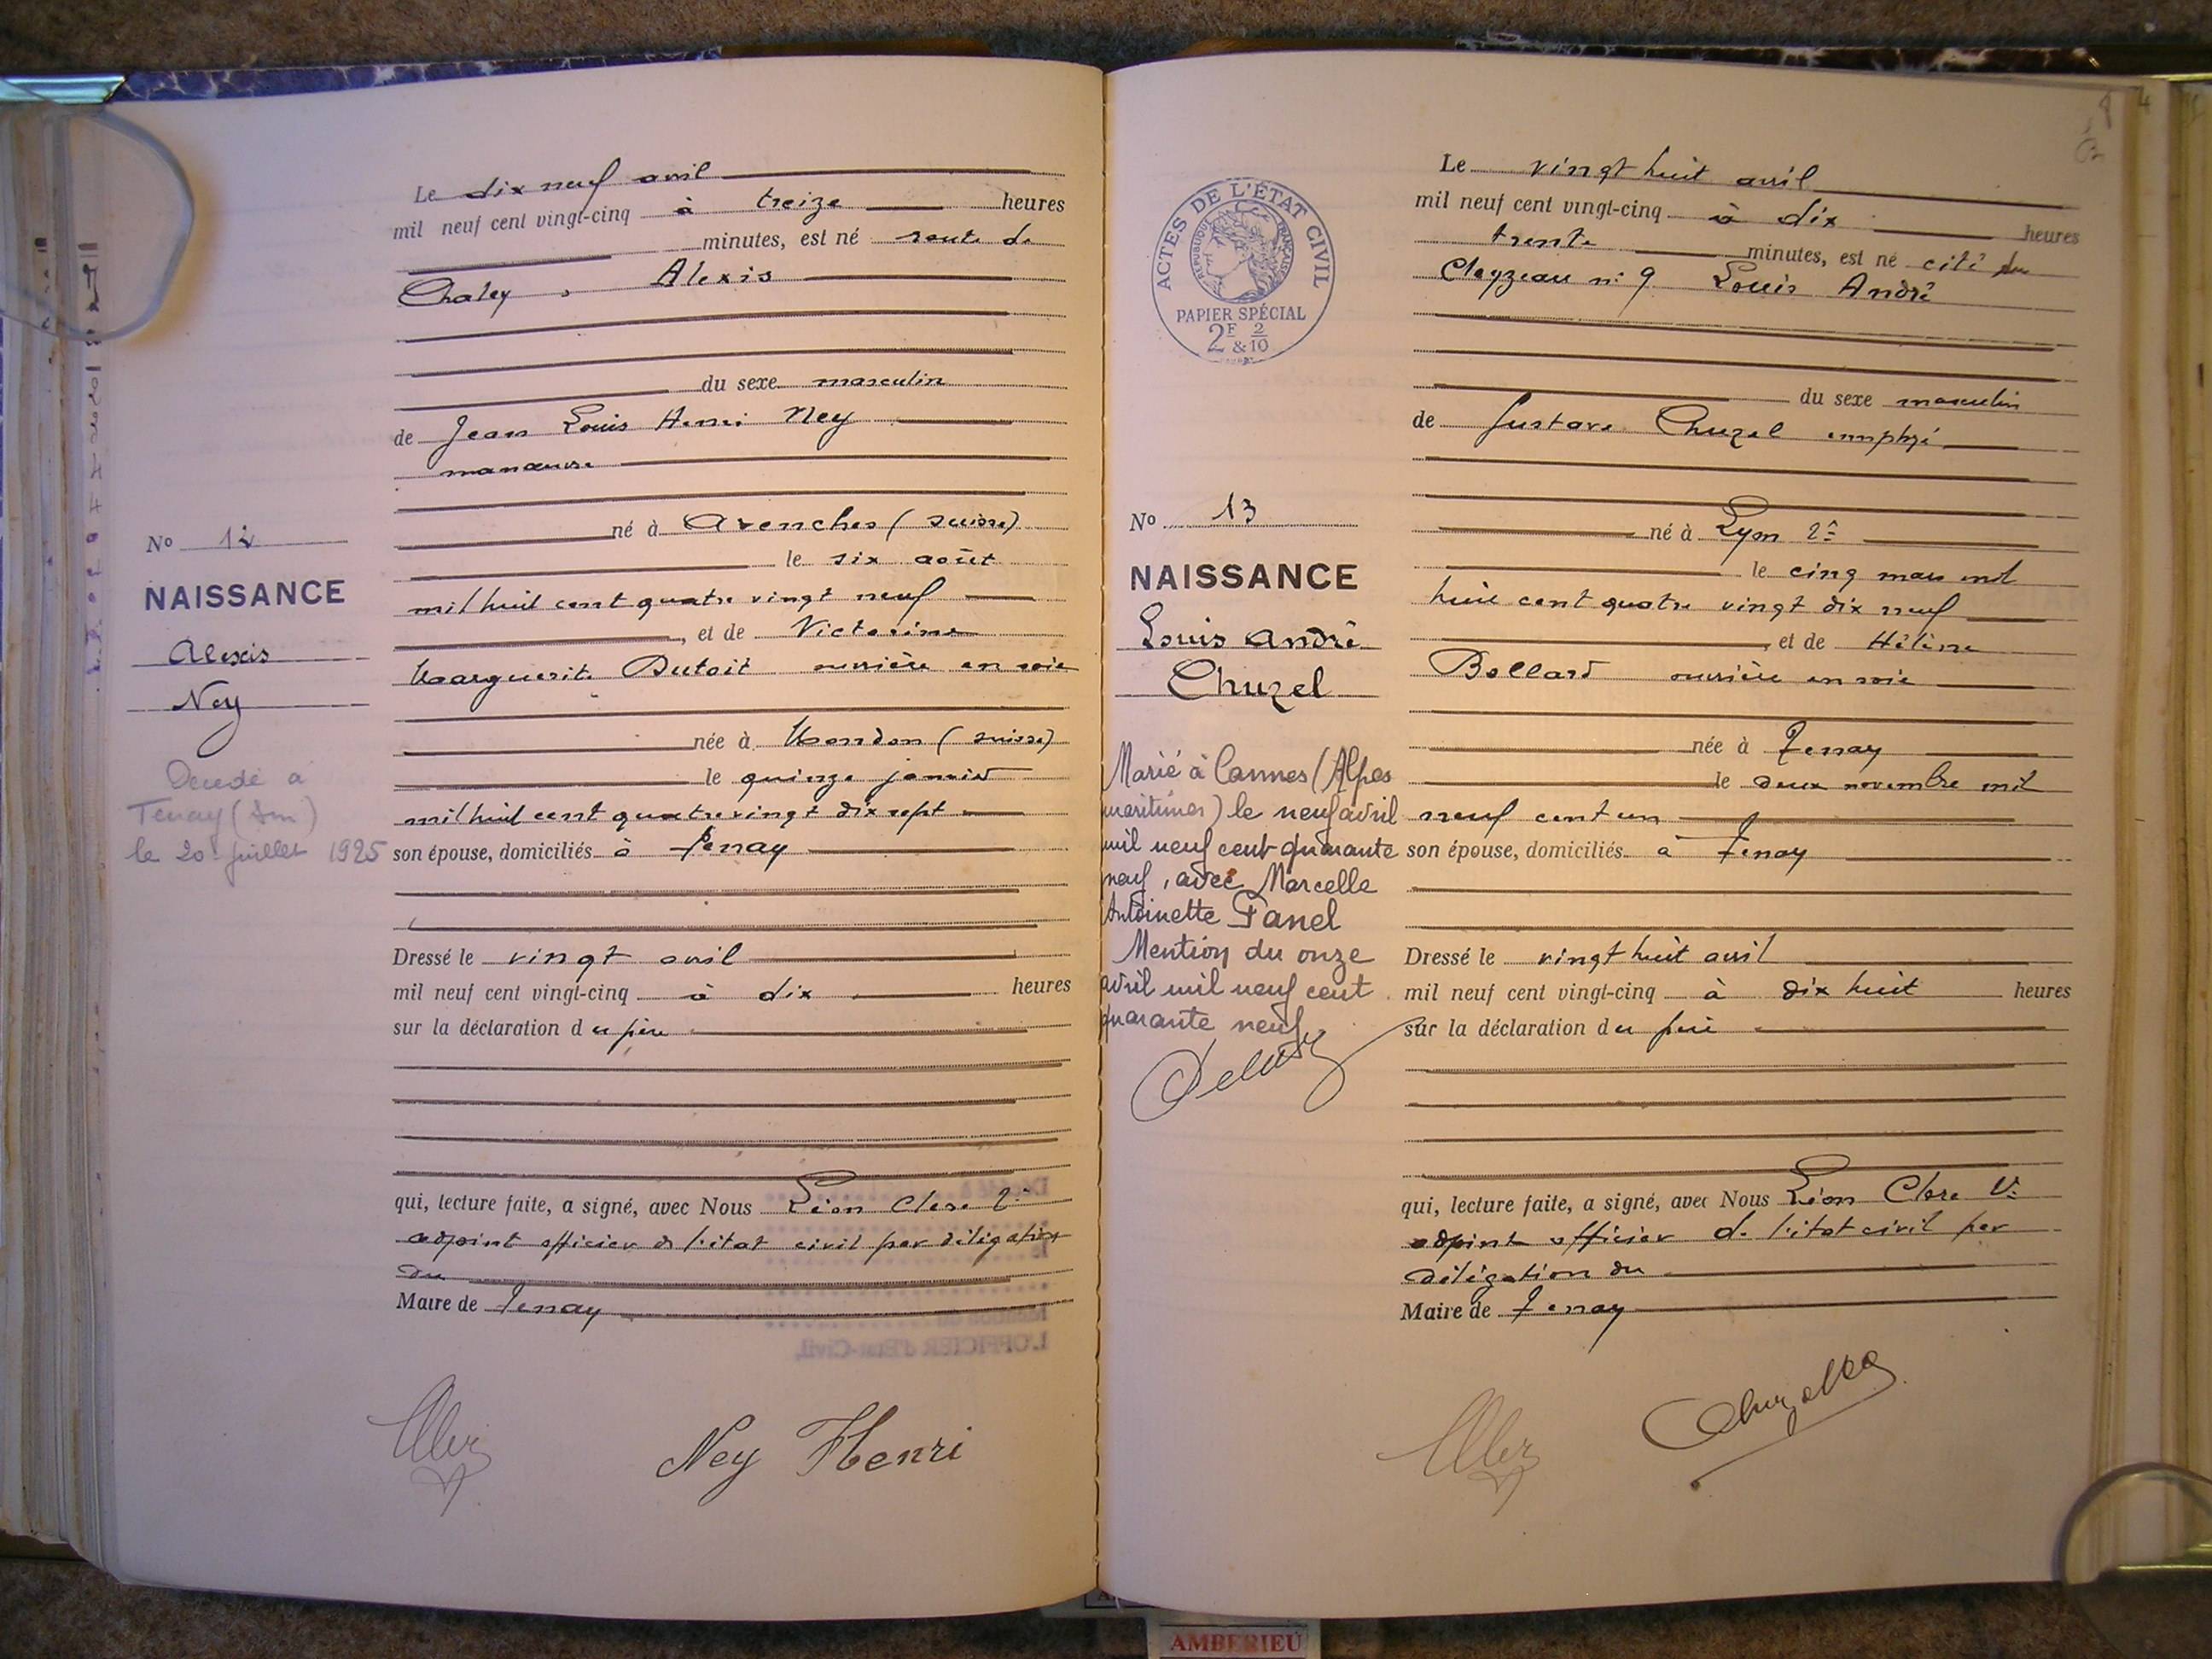 Le dix neuf avril
mil neuf cent vingt-cinq à treize heures
minutes, est né route de
Chaley, Alexis
du sexe masculin
de Jean Louis Henri Ney
manœuvre
né à Avenches (Suisse)
le six août
mil huit cent quatre vingt neuf
, et de Victorine
Marguerite Dutoit ouvrière en soie
née à Moudon (Suisse)
le quinze janvier
mil huit cent quatre vingt dix sept
son épouse, domiciliés à Tenay
Dressé le vingt avril
mil neuf cent vingt-cinq à dix heures
sur la déclaration du père
qui, lecture faite, a signé, avec Nous Léon Clerc
adjoint officier de l'état civil par délégation
du
Maire de Tenay
Ney Henri
No 12
NAISSANCE
Alexis
Ney
Décédé à
Tenay (Ain)
le 20 juillet 1925
ACTES DE L'ÉTAT CIVIL
RÉPUBLIQUE FRANÇAISE
PAPIER SPÉCIAL
2F & 2/10
No 13
NAISSANCE
Louis André
Chuzel
Marié à Cannes (Alpes
maritimes) le neuf avril
mil neuf cent quarante
neuf, avec Marcelle
Antoinette Panel
Mention du onze
avril mil neuf cent
quarante neuf
Le vingt huit avril
mil neuf cent vingt-cinq à dix heures
trente minutes, est né cité du
Cleyzeau n: 9 Louis André
du sexe masculin
de Gustave Chuzel employé
né à Lyon 2e
le cinq mars mil
huit cent quatre vingt dix neuf
, et de Hélène
Bollard ouvrière en soie
née à Tenay
le deux novembre mil
neuf cent un
son épouse, domiciliés à Tenay
Dressé le vingt huit avril
mil neuf cent vingt-cinq à dix huit heures
sur la déclaration du père
qui, lecture faite, a signé, avec Nous Léon Clerc
adjoint officier de l'état civil par
délégation du
Maire de Tenay
AMBERIEU